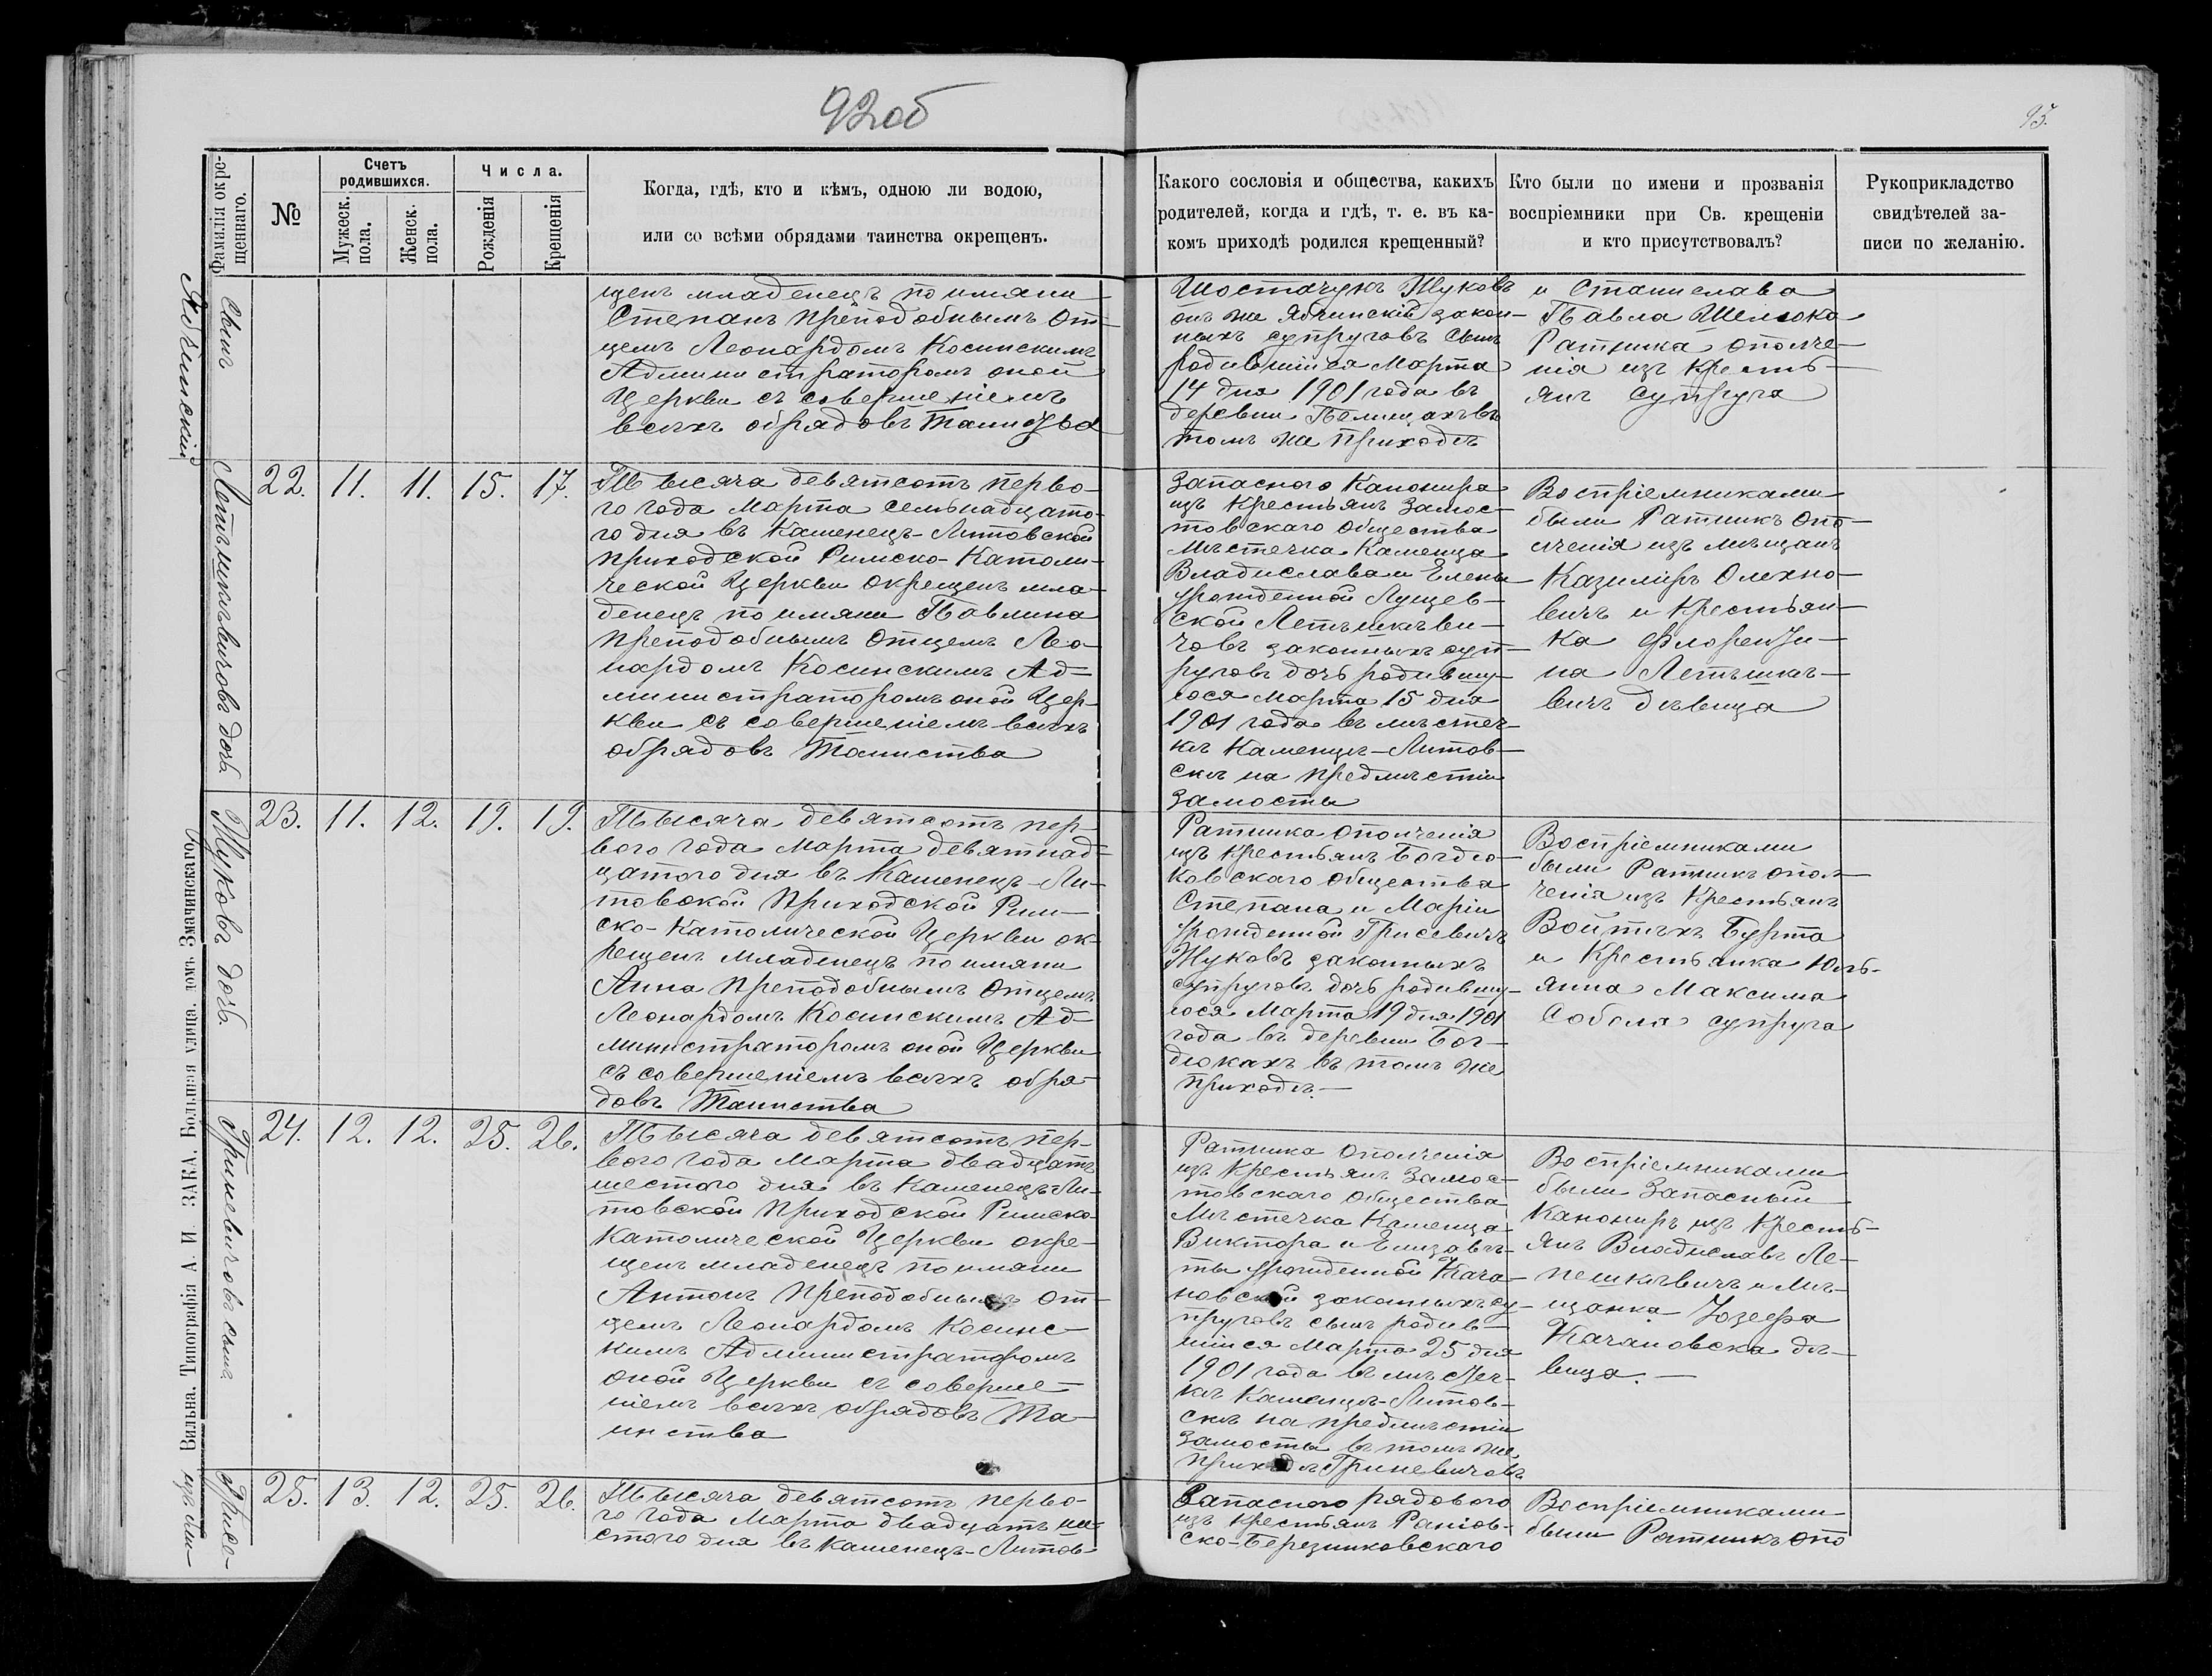 92об
95.
Фамилія окре-
щеннаго.
№
Счетъ
родившихся.
Мужеск.
пола.
Женск.
пола.
Числа.
Рожденія
Крещенія
Когда, гдѣ, кто и кѣмъ, одною ли водою,
или со всѣми обрядами таинства окрещенъ.
Какого сословія и общества, какихъ
родителей, когда и гдѣ, т. е. въ ка-
комъ приходѣ родился крещенный?
Кто были по имени и прозванія
воспріемники при Св. крещеніи
и кто присутствовалъ?
Рукоприкладство
свидѣтелей за-
писи по желанію.
сынъ
Ябчинскій
щенъ младенецъ по имяни
Степанъ преподобнымъ От-
цемъ Леонардомъ Косинскимъ
Администраторомъ оной
Церкви съ совершеніемъ
всѣхъ обрядовъ Таинства
Шостачукъ Жуковъ
онъ же Ябчинскій закон-
ныхъ супруговъ сынъ
родившійся Марта
14 дня 1901 года въ
деревни Пелищахъ въ
томъ же приходѣ
и Станислава
Павла Шелюка
Ратника ополче-
нія изъ кресть-
янъ супруга
Летѣшкѣвичовъ дочь
22. 11. 11. 15. 17.
Тысяча девятсотъ перво-
го года Марта семьнадцато-
го дня въ Каменецъ-Литовской
приходской Римско-Католи-
ческой Церкви окрещенъ мла-
денецъ по имяни Павлина
преподобнымъ Отцемъ Лео-
нардомъ Косинскимъ Ад-
министраторомъ оной Цер-
кви съ совершеніемъ всѣхъ
обрядовъ Таинства
Запасного Канонира
изъ крестьянъ Замос-
товскаго общества
Мѣстечка Каменца
Владислава и Елены
урожденной Лущев-
ской Летѣшкѣви-
човъ законныхъ суп-
руговъ дочь родившу-
юся Марта 15 дня
1901 года въ мѣстеч-
кѣ Каменцѣ-Литов-
скѣ на предмѣстіи
Замосты
Воспріемниками
были Ратникъ опо-
лченія изъ мѣщанъ
Казимиръ Олехно-
вичъ и крестьян-
ка Флоренти-
на Летѣшкѣ-
вичъ дѣвица
Жуковъ дочь
23. 11. 12. 19. 19.
Тысяча девятсотъ пер-
вого года Марта девятнад-
цатого дня въ Каменецъ-Ли-
товской приходской Рим-
ско-Католической Церкви ок-
рещенъ младенецъ по имяни
Анна преподобнымъ Отцемъ
Леонардомъ Косинскимъ Ад-
министраторомъ оной Церкви
съ совершеніемъ всѣхъ обря-
довъ Таинства
Ратника ополченія
изъ крестьянъ Богдю-
ковскаго общества
Степана и Маріи
урожденной Грисевичъ
Жуковъ законныхъ
супруговъ дочь родившу-
юся Марта 19 дня 1901
года въ деревни Бог-
дюкахъ въ томъ же
приходѣ.—
Воспріемниками
были Ратникъ опол-
ченія изъ крестьянъ
Войтѣхъ Бурта
и крестьянка Юль-
янна Максима
Соболя супруга
Гриневичовъ сынъ
24. 12. 12. 25. 26.
Тысяча девятсотъ пер-
вого года Марта двадцать
шестого дня въ Каменецъ-Ли-
товской приходской Римско-
Католической Церкви окре-
щенъ младенецъ по имяни
Антонъ преподобнымъ От-
цемъ Леонардомъ Косинс-
кимъ Администраторомъ
оной Церкви съ соверше-
ніемъ всѣхъ обрядовъ Та-
инства
Ратника ополченія
изъ крестьянъ Замос-
товскаго общества
Мѣстечка Каменца
Виктора и Елизавѣ-
ты урожденной Кача-
новской законныхъ су-
пруговъ сынъ родив-
шійся Марта 25 дня
1901 года въ мѣстеч-
кѣ Каменцѣ-Литов-
скѣ на предмѣстіи
Замосты въ томъ же
приходѣ Гриневичовъ
Воспріемниками
были Запасный
Канониръ изъ кресть-
янъ Владиславъ Ле-
пешкѣвичъ и Мѣ-
щанка Юзефа
Качановска дѣ-
вица.—
25. 13. 12. 25. 26.
Тысяча девятсотъ перво-
го года Марта двадцать ше-
стого дня въ Каменецъ-Литов-
Запасного рядового
изъ крестьянъ
ско-Березниковскаго
Воспріемниками
были Ратникъ опо
Вильна. Типографія А. И. ЗАКА, Большая улица, домъ Змачинскаго.